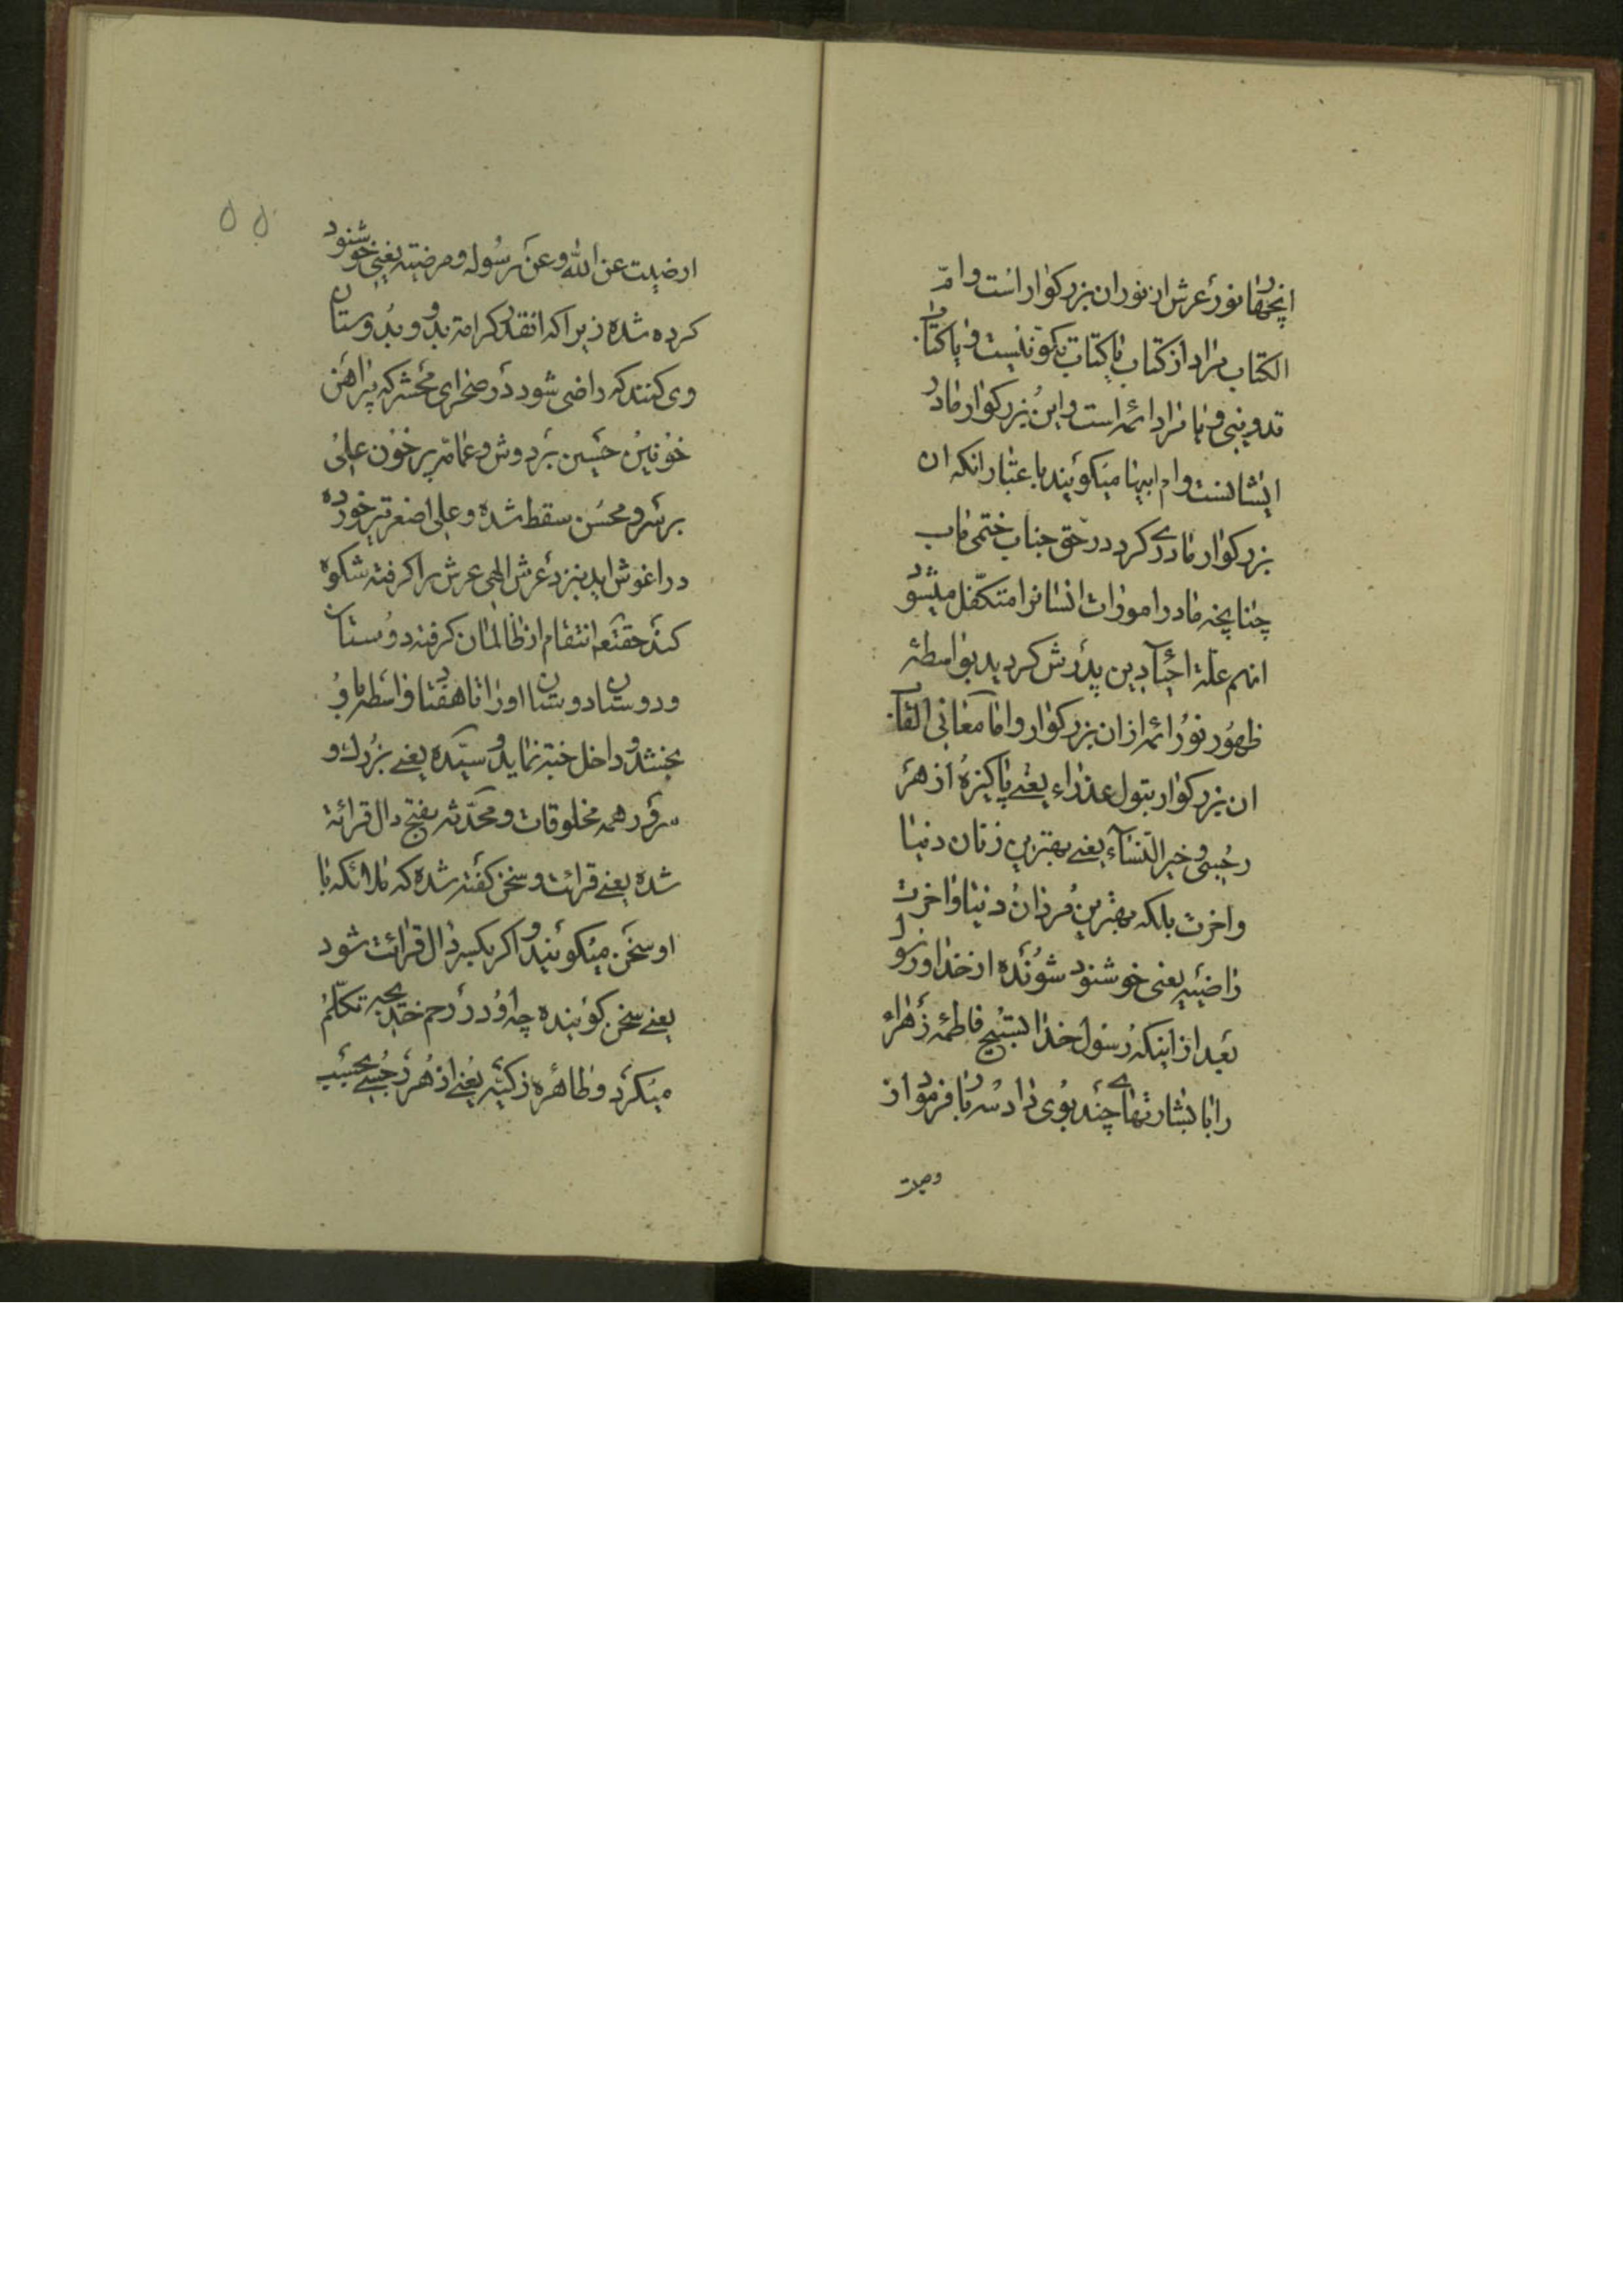 انچهار نور عرش از نور ان بزرکوار است و ام
الکتاب مراد از کتاب یا کتاب تکوینیست و یا کتاب
تدوینی و یا مراد ائمه است و این بزرکوار مادر
ایشانست و ام ابیها میکویند باعتبار انکه ان
بزرکوار مادری کرد در حق جناب ختمی ماب
چنانچه مادر امورات انسانرا متکفل میشود
انهم علة احیآ دین پدرش کردید بواسطه
ظهور نور ائمه از ان بزرکوار و اما معانی القاب
ان بزرکوار بتول عذراء یعنے پاکیزه از هر
رجسی و خیر النسآء یعنے بهترین زنان دنیا
و اخرت بلکه بهترین مردان دنیا و اخرت
راضیه یعنی خوشنود شونده از خدا و رسول
بعد از اینکه رسول خدا تسبیح فاطمه زهراء
را با بشارتهاے چند بوی داد سر را فرمود از
وصیت
ارضیت عن الله و عن رسوله و مرضیه یعنی خوشنود
کرده شده زیرا که انقدر کرامة بدو و بدوستان
وی کنند که راضی شود در صحرای محشر که پیراهن
خونین حسین بر دوش و عمامه پر خون علی
بر سر و محسن سقط شده و علی اصغر تیر خورده
در اغوش اید بنزد عرش الهی عرش را کرفته شکوه
کند حقتعه انتقام از ظالمان کرفته دوستان
و دوستان دوستان او را تا هفتاد واسطه باو
بخشد و داخل جنة نماید و سیده یعنے بزرك و
سرور همه مخلوقات و محدثه بفتح دال قرائة
شده یعنے قرائت و سخن کفته شده که ملائکه با
او سخن میکویند و اکر بکسر دال قرائت شود
یعنے سخن کوینده چه او در رحم خدیجه تکلم
میکرد و طاهره زکیه یعنے از هر رجسے بحسب